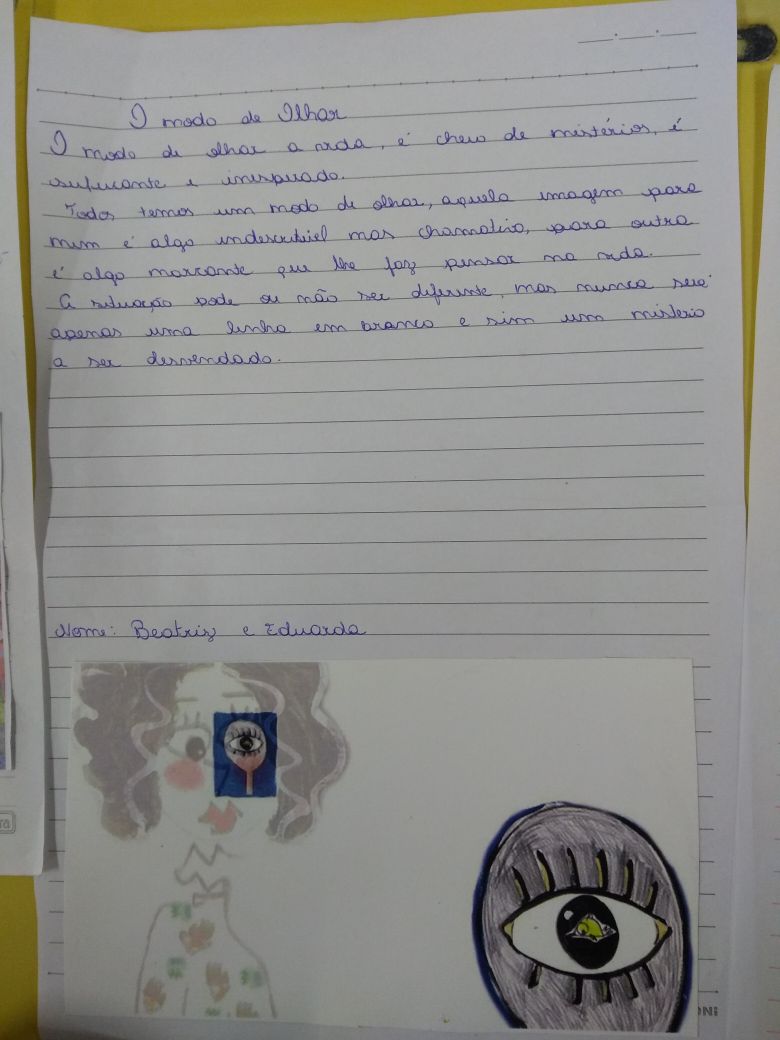 O modo de Olhar
O modo de olhar a vida, é cheio de mistérios, é
sufucante e inesperado.
Todos temos um modo de olhar, aquela imagem para
mim é algo undescritivel mas chamativo, para outra
é algo marcante que lhe faz pensar na vida.
A situação pode ou não ser diferente, mas nunca será
apenas uma linha em branco e sim um mistério
a ser desvendado.
Nome: Beatriz e Eduarda